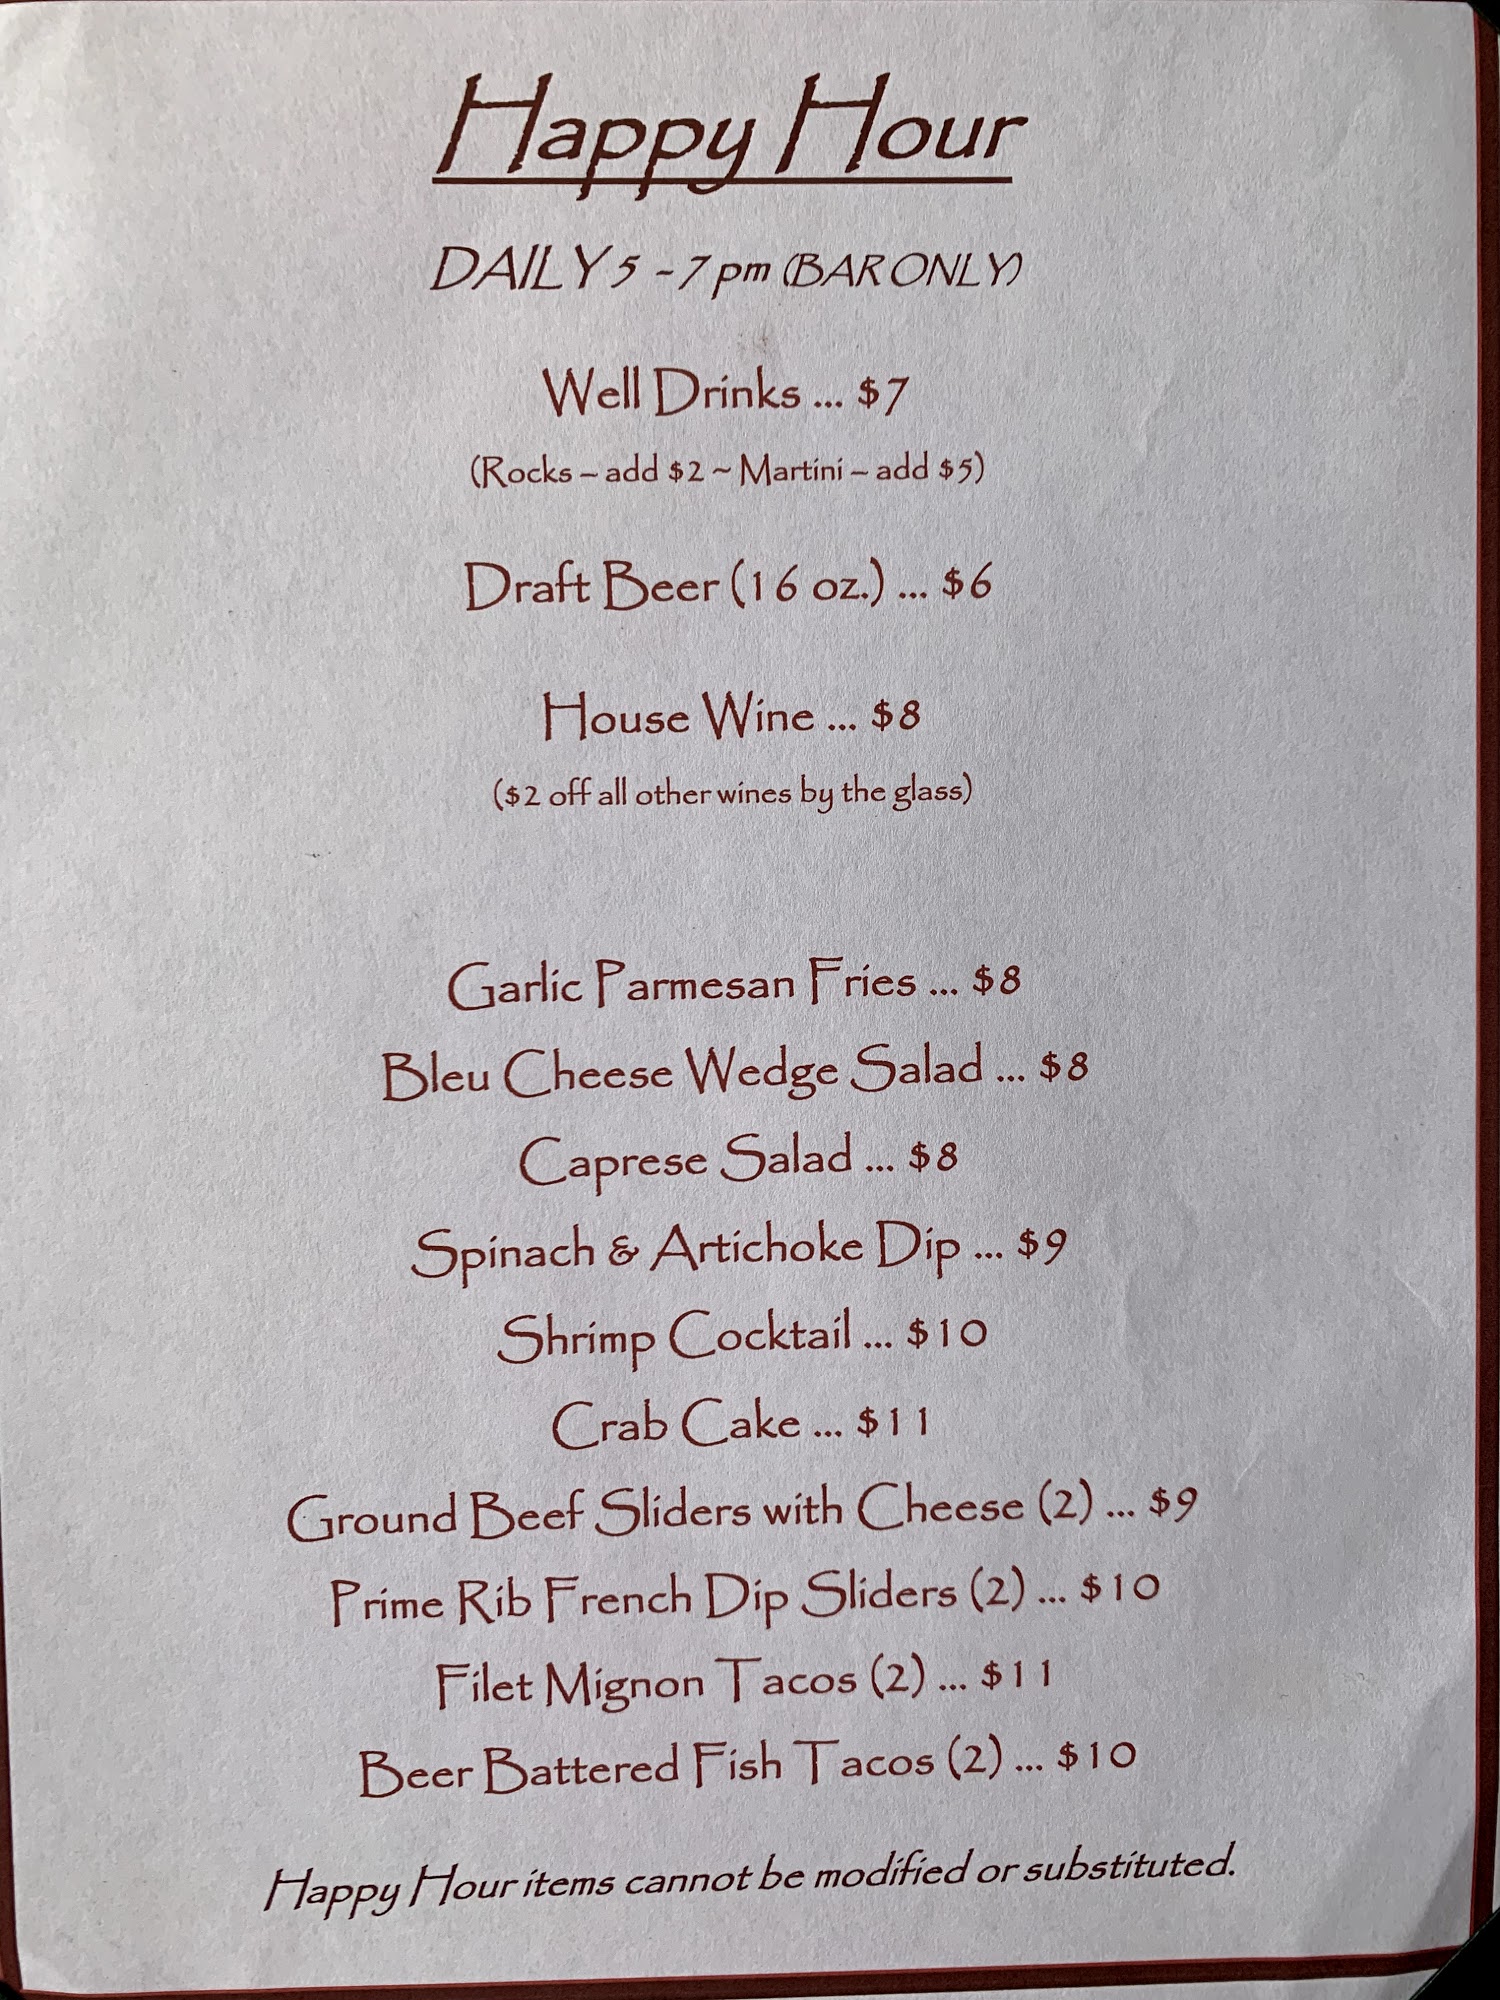 Happy Hour
DAILY 5 - 7 pm (BAR ONLY)
Well Drinks ... $7
(Rocks – add $2 ~ Martini – add $5)
Draft Beer (16 oz.) ... $6
House Wine ... $8
($2 off all other wines by the glass)
Garlic Parmesan Fries ... $8
Bleu Cheese Wedge Salad ... $8
Caprese Salad ... $8
Spinach & Artichoke Dip ... $9
Shrimp Cocktail ... $10
Crab Cake ... $11
Ground Beef Sliders with Cheese (2) ... $9
Prime Rib French Dip Sliders (2) ... $10
Filet Mignon Tacos (2) ... $11
Beer Battered Fish Tacos (2) ... $10
Happy Hour items cannot be modified or substituted.